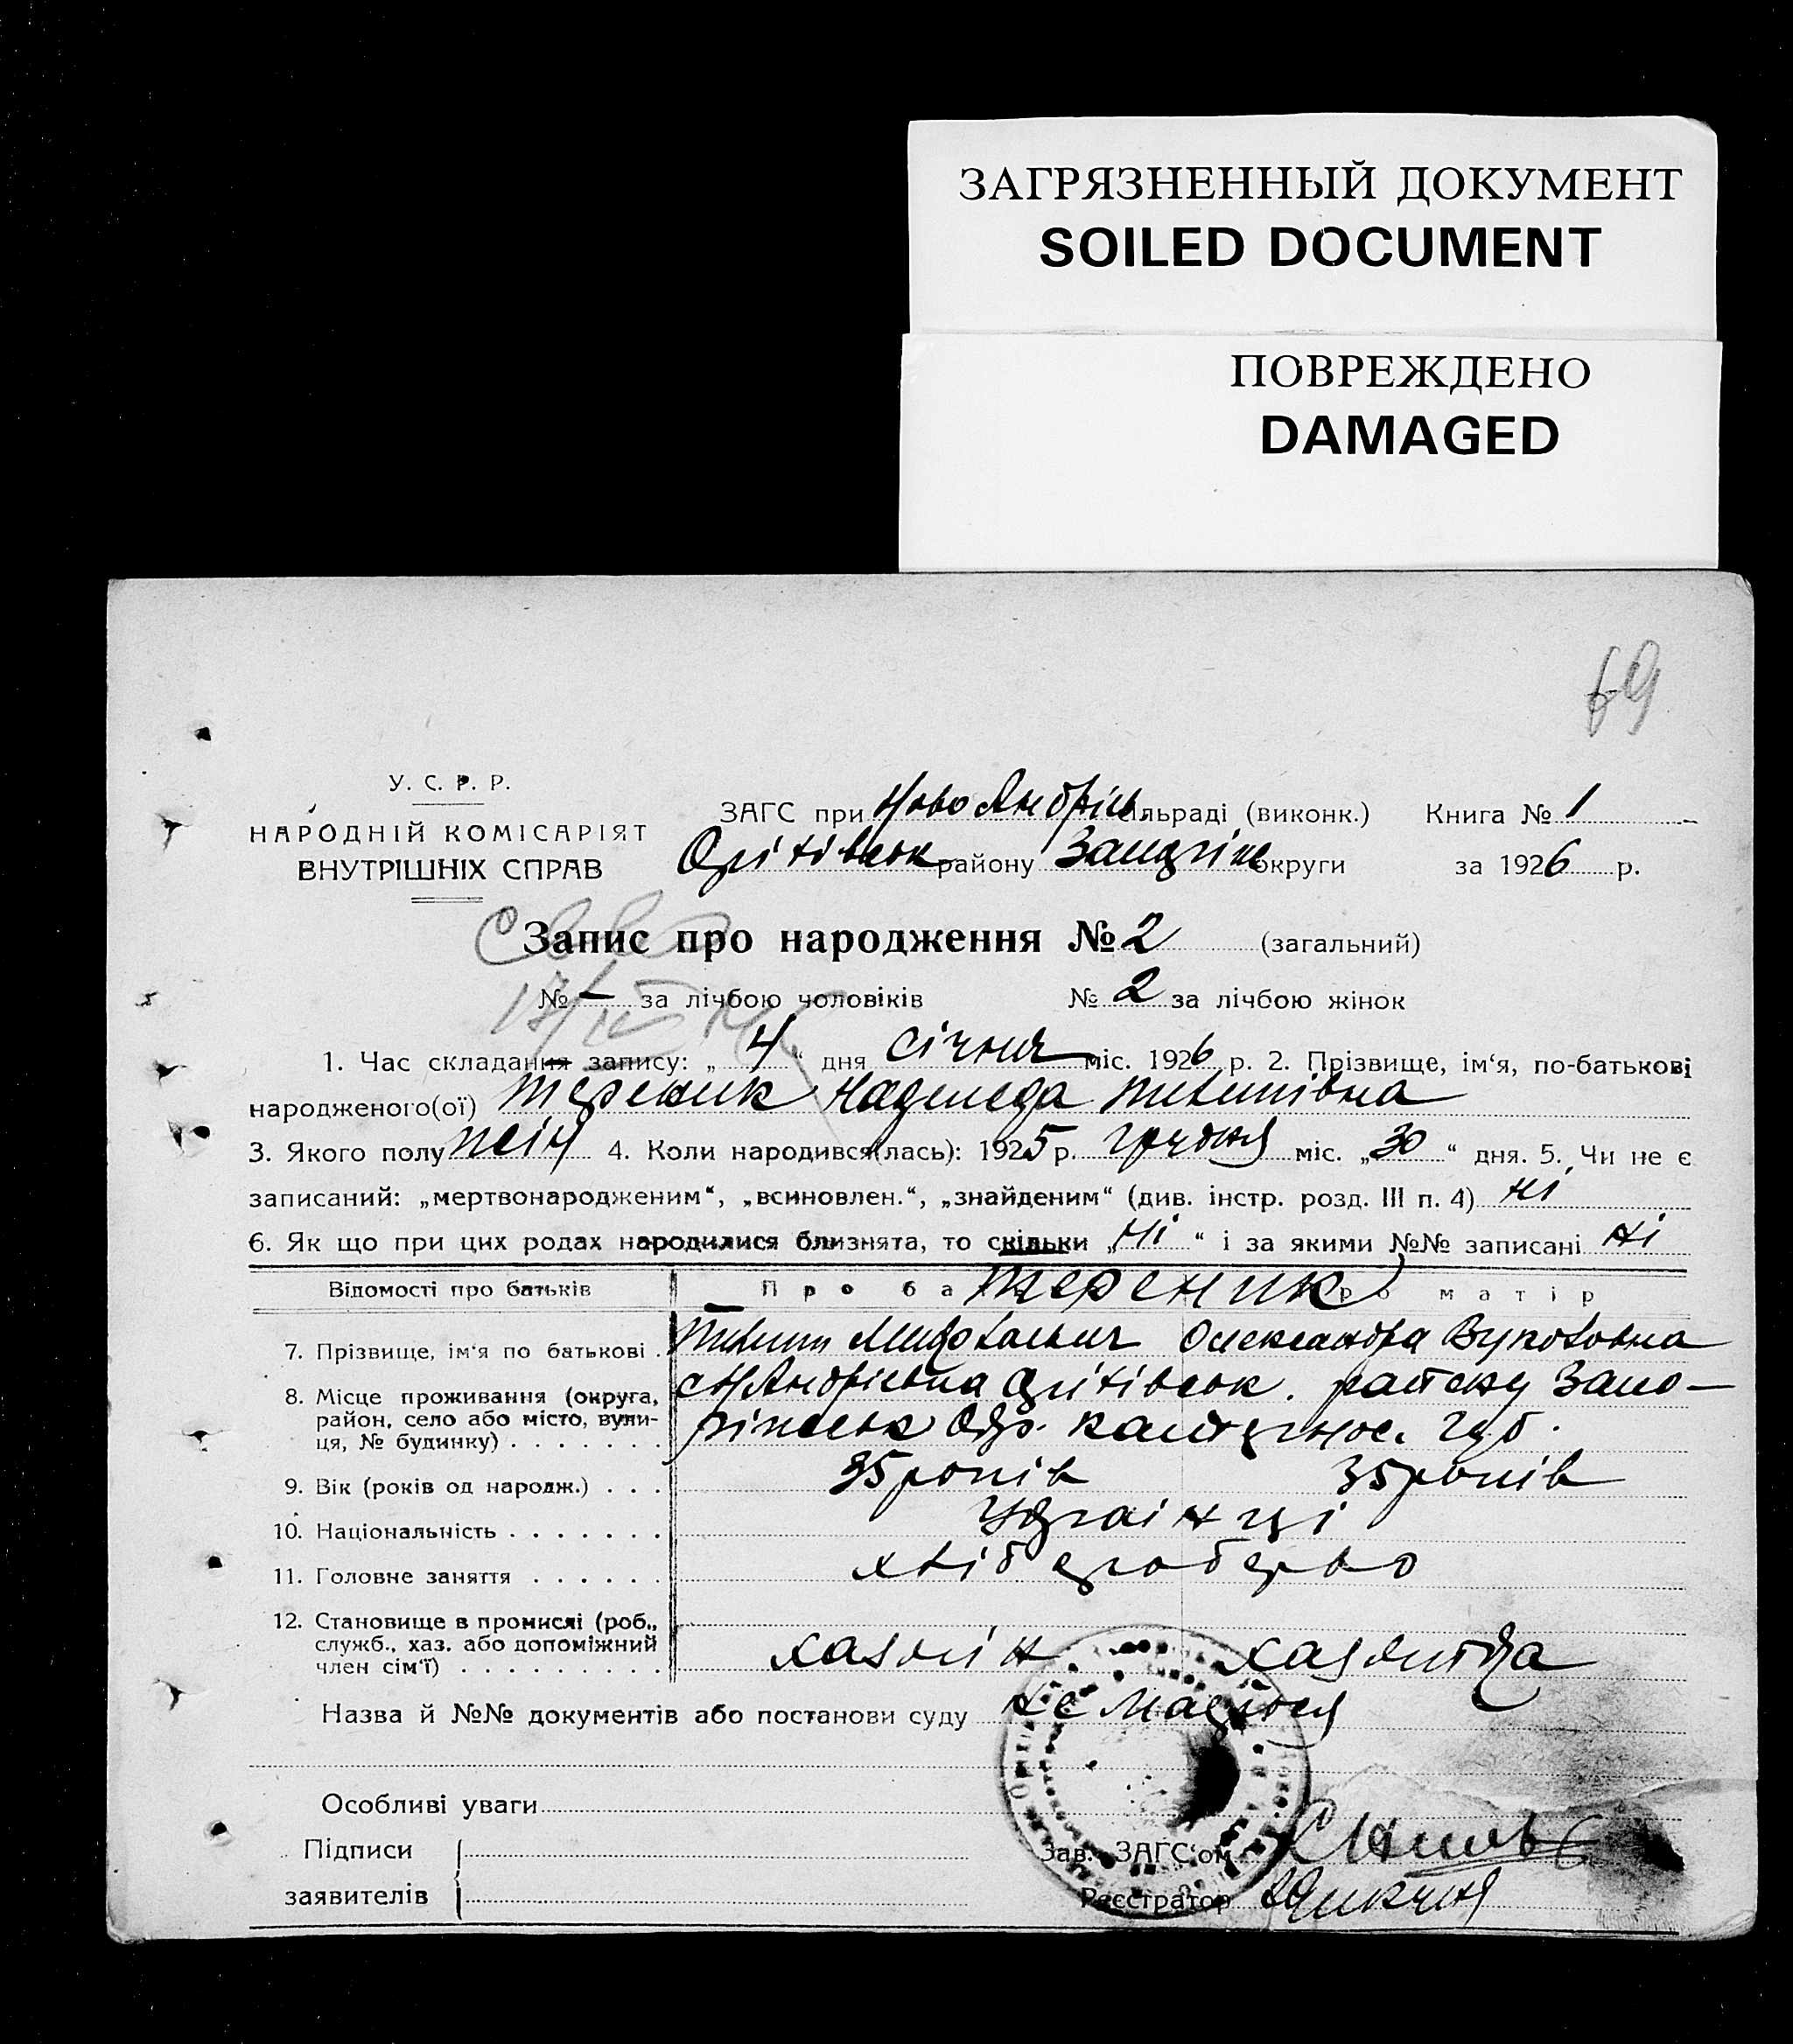 ЗАГРЯЗНЕННЫЙ ДОКУМЕНТ
SOILED DOCUMENT
ПОВРЕЖДЕНО
DAMAGED
69
У. С. Р. Р.
НАРОДНІЙ КОМІСАРІЯТ
ВНУТРІШНІХ СПРАВ
ЗАГС при Ново Андрієв. сільраді (виконк.) Книга № 1
району округи за 1926 р.
Запис про народження № 2 (загальний)
№ – за лічбою чоловіків № 2 за лічбою жінок
1. Час складання запису: „ 4 “ дня січня міс. 1926 р. 2. Прізвище, ім‘я, по-батькові
народженого(ої) Тереник Надежда Тихинівна
3. Якого полу жін 4. Коли народився(лась): 1925 р. грудня міс. „ 30 “ дня. 5. Чи не є
записаний: „мертвонародженим“, „всиновлен.“, „знайденим“ (див. інстр. розд. III п. 4) ні
6. Як що при цих родах народилися близнята, то скільки „ Ні “ і за якими №№ записані ні
Відомості про батьків Про ба Тереник ро матір
7. Прізвище, ім‘я по батькові . Олександра
8. Місце проживання (округа,
район, село або місто, вули-
ця, № будинку) . . . . . . . губ.
9. Вік (років од народж.) . . . 35 років 35 років
10. Національність . . . . . . . Українці
11. Головне заняття . . . . . . хліборобство
12. Становище в промислі (роб.,
служб., хаз. або допоміжний
член сім‘ї) . . . . . . . . . хазяін хазяйка
Назва й №№ документів або постанови суду не мається
Особливі уваги
Підписи
заявителів
Зав. ЗАГС‘ом
Реєстратор